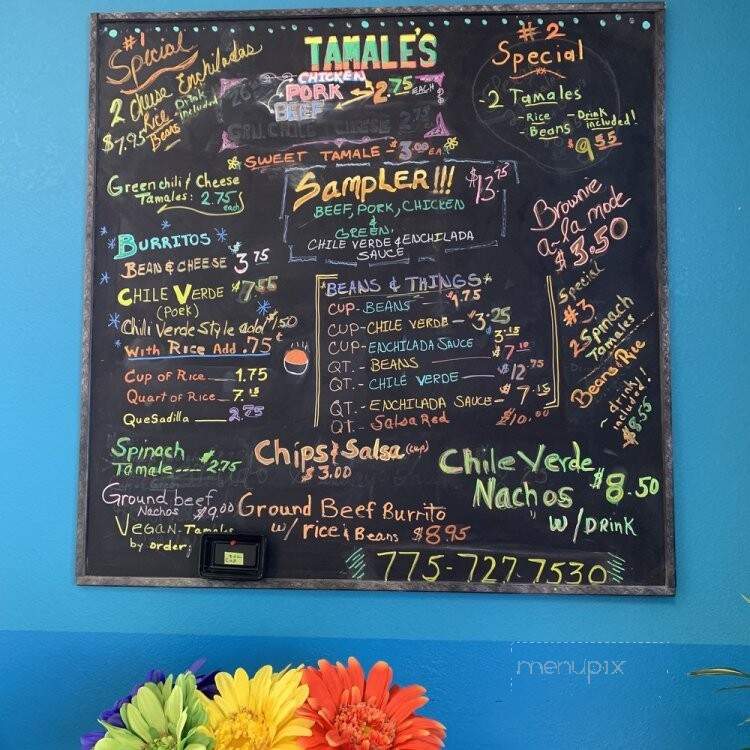 #1
Special
2 Cheese Enchiladas
Rice
Beans
Drink
included
$7.95
TAMALE'S
CHICKEN
PORK
BEEF
2.75 EACH
SWEET TAMALE - $3.00 EA.
#2
Special
-2 Tamales
-Rice
-Beans
-Drink
included!
$9.55
Green chili & Cheese
Tamales: 2.75
each
SAMPLER!!! $13.75
BEEF, PORK, CHICKEN
&
GREEN,
CHILE VERDE & ENCHILADA
SAUCE
Brownie
a-la mode
$3.50
BURRITOS
BEAN & CHEESE $3.75
CHILE VERDE $7.55
(PORK)
Chili Verde Style add $1.50
With Rice Add .75¢
Cup of Rice 1.75
Quart of Rice 7.15
QueSadilla 2.75
BEANS & THINGS
CUP - BEANS $1.75
CUP - CHILE VERDE - $3.25
CUP - ENCHILADA SAUCE $3.15
QT. - BEANS $7.10
QT. - CHILE VERDE $12.75
QT. - ENCHILADA SAUCE - $7.15
QT. - Salsa Red $10.00
Special
#3
2 Spinach
Tamales
Beans & Rice
~ drink!
included!
$8.55
Spinach
Tamale ---- $2.75
Chips & Salsa (cup)
$3.00
Chile Verde
Nachos $8.50
w/ DRINK
Ground beef
Nachos $9.00
Vegan-Tamales
by order;
Ground Beef Burrito
w/ rice & Beans $8.95
775-727-7530
menupix